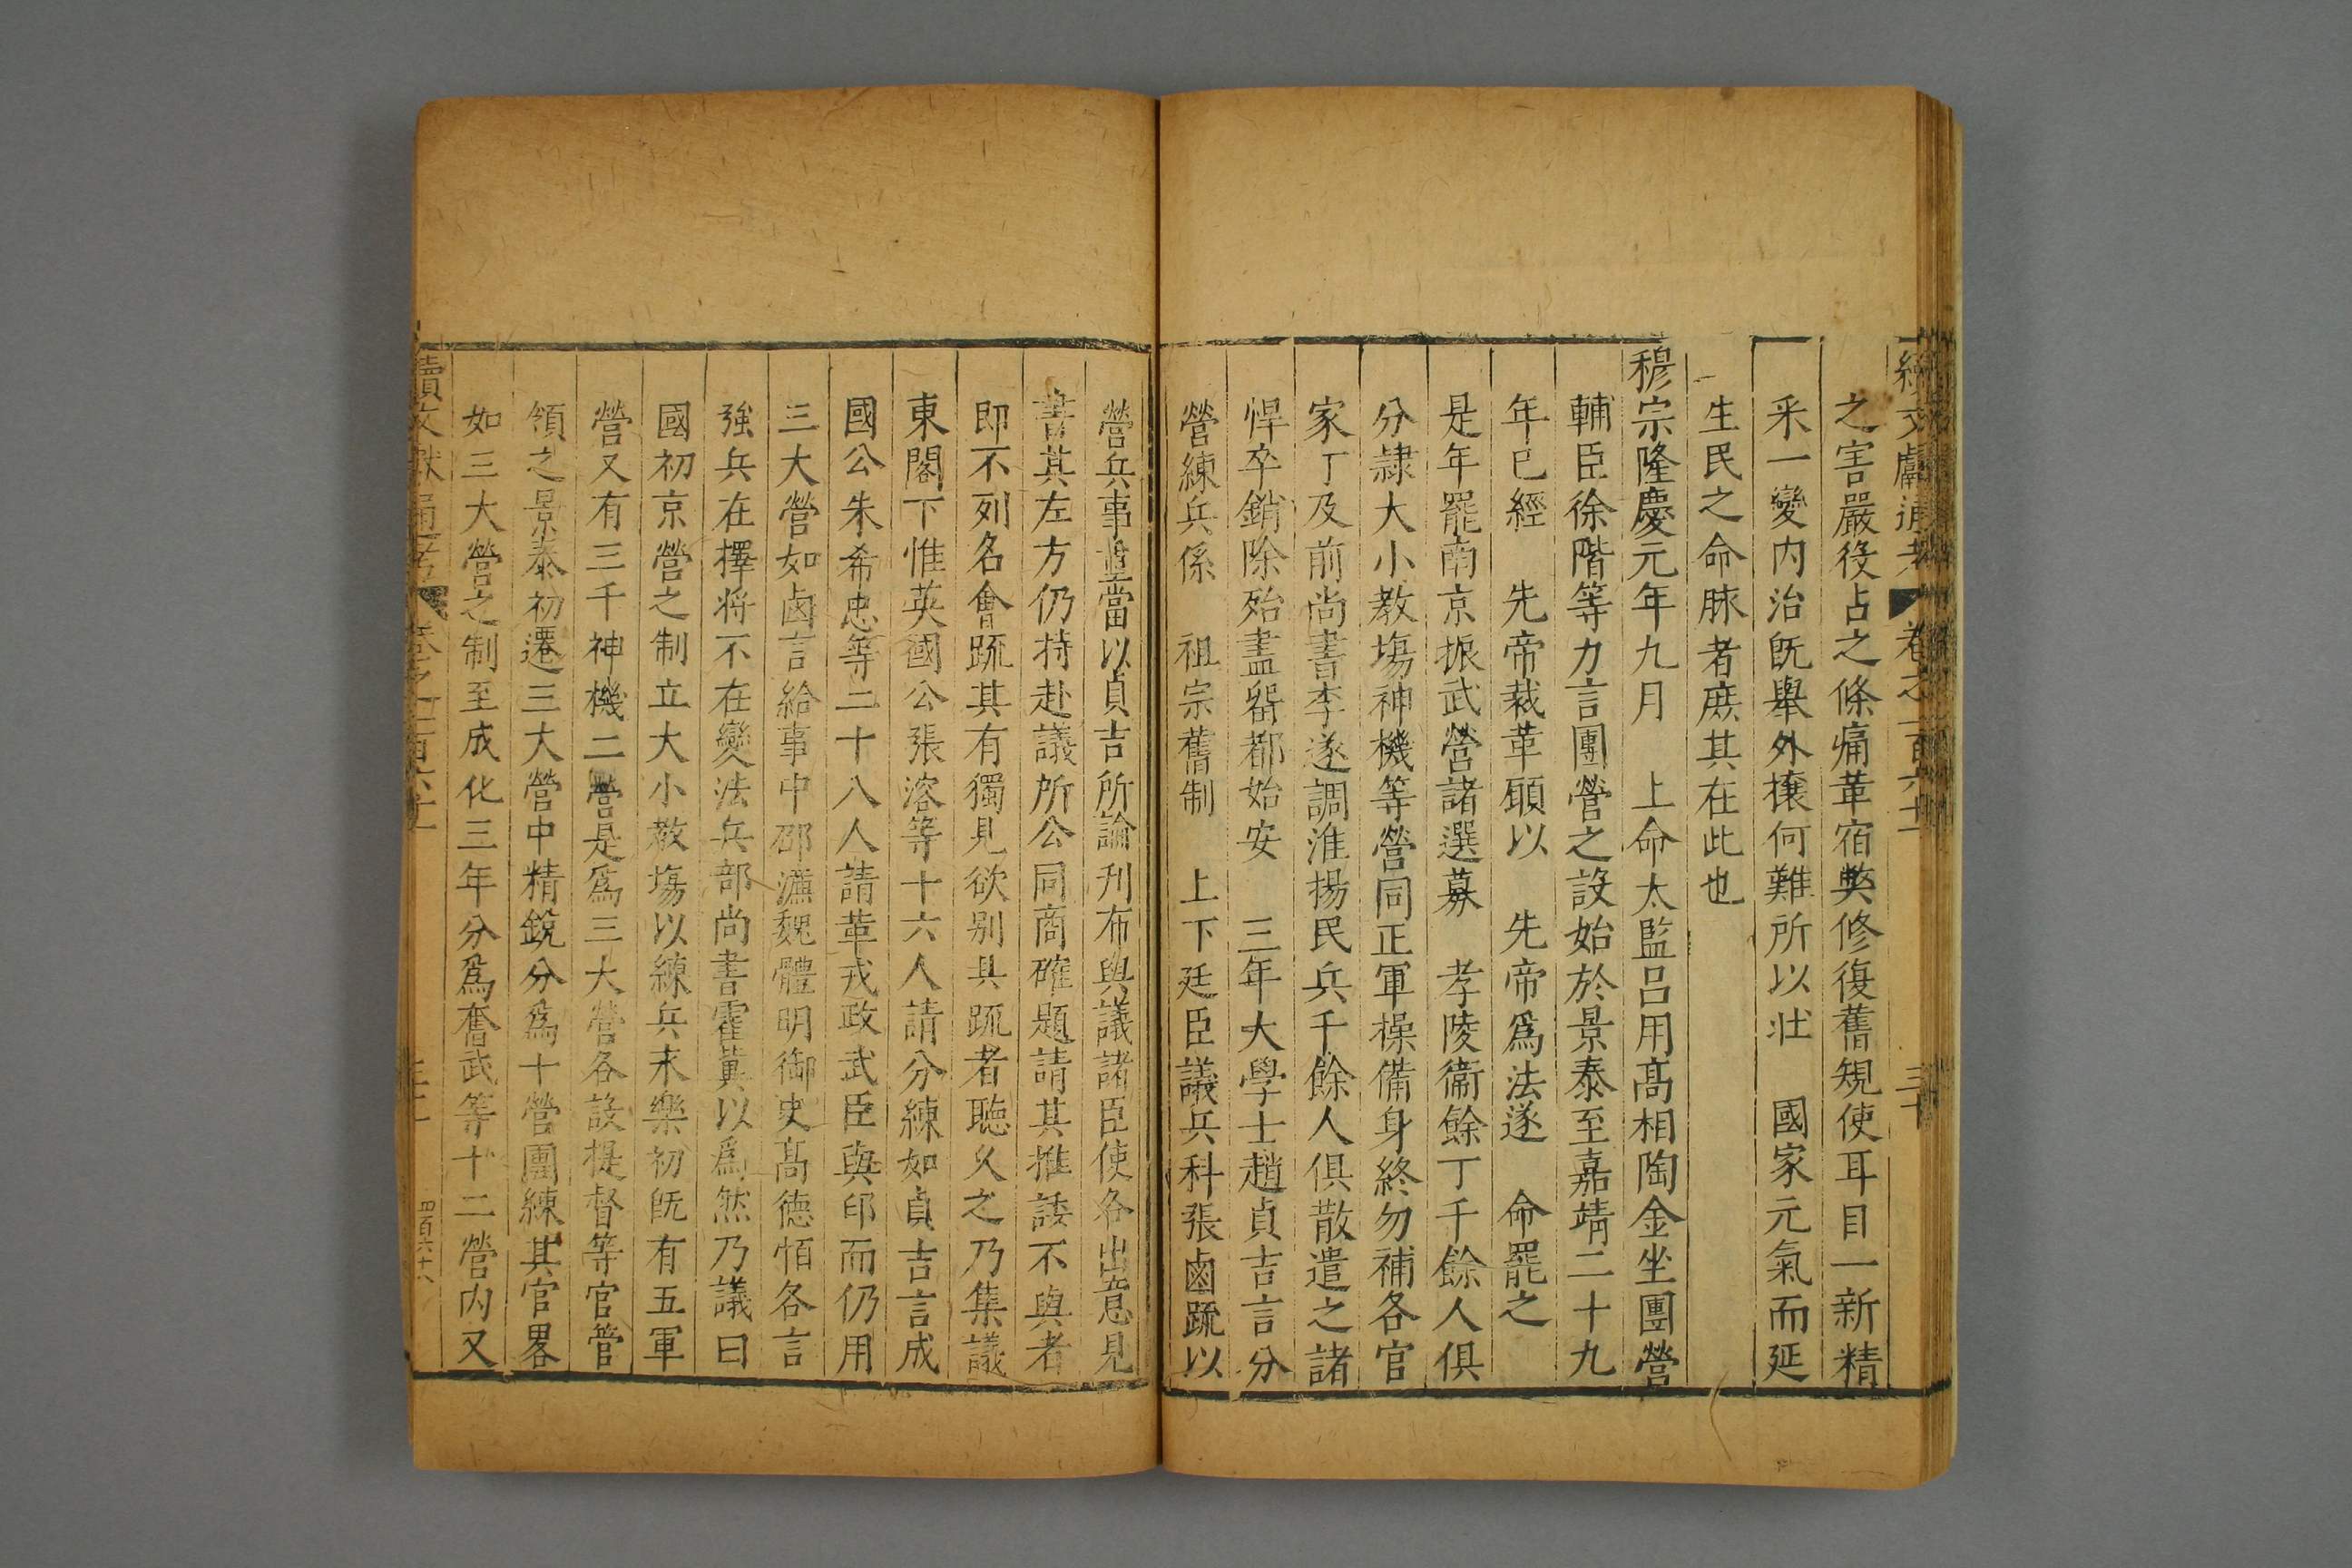 續文獻通考 卷之一百六十 三十
之害嚴役占之條痛革宿弊修復舊規使耳目一新精
采一變內治旣舉外攘何難所以壯 國家元氣而延
生民之命脉者庶其在此也
穆宗隆慶元年九月 上命太監呂用高相陶金坐團營
輔臣徐階等力言團營之設始於景泰至嘉靖二十九
年已經 先帝裁革願以 先帝爲法遂 命罷之
是年罷南京振武營諸選募 孝陵衞餘丁千餘人俱
分隷大小教塲神機等營同正軍操備身終勿補各官
家丁及前尚書李遂調淮揚民兵千餘人俱散遣之諸
悍卒銷除殆盡畱都始安 三年大學士趙貞吉言分
營練兵係 祖宗舊制 上下廷臣議兵科張鹵䟽以
營兵事重當以貞吉所論刋布與議諸臣使各出意見
書其左方仍持赴議所公同商確題請其推諉不與者
即不列名會䟽其有獨見欲别具䟽者聽久之乃集議
東閣下惟英國公張溶等十六人請分練如貞吉言成
國公朱希忠等二十八人請革戎政武臣與印而仍用
三大營如鹵言給事中邵濂魏體明御史髙德恒各言
強兵在擇将不在變法兵部尚書霍冀以爲然乃議曰
國初京營之制立大小教塲以練兵末樂初旣有五軍
營又有三千神機二營是爲三大營各設提督等官管
領之景泰初遷三大營中精銳分爲十營團練其官畧
如三大營之制至成化三年分爲奮武等十二營內又
續文獻通考 卷之一百六十 三十一 四百六十八